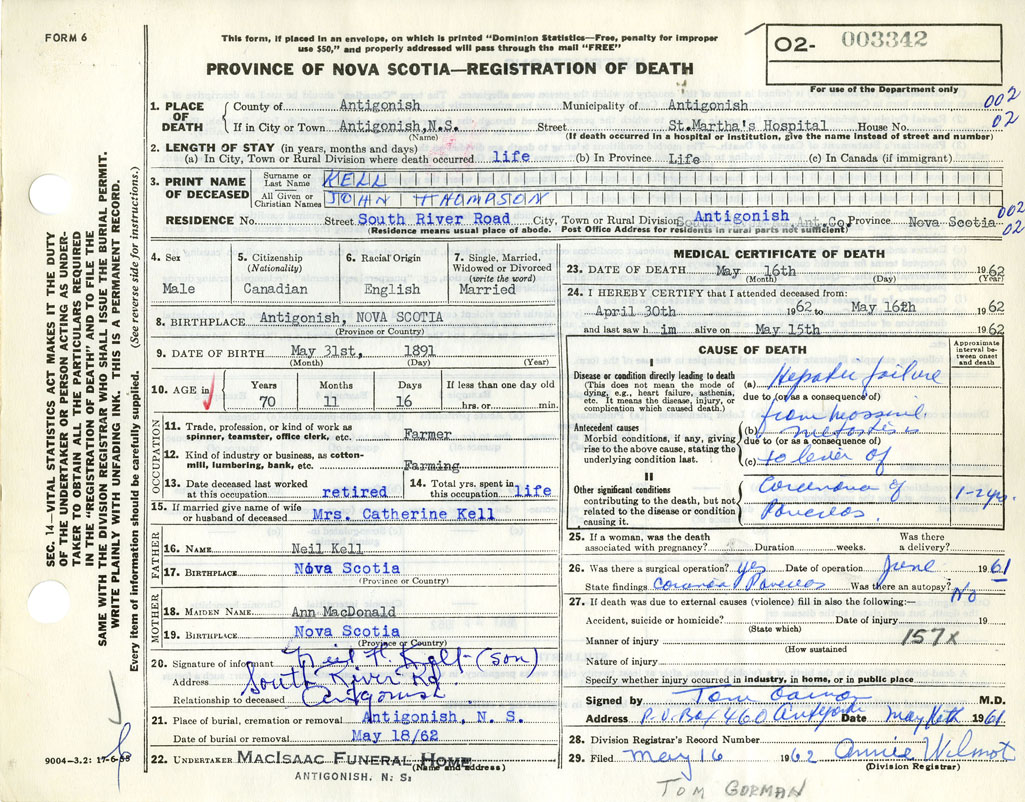 FORM 6
This form, if placed in an envelope, on which is printed "Dominion Statistics—Free, penalty for improper
use $50," and properly addressed will pass through the mail "FREE"
PROVINCE OF NOVA SCOTIA—REGISTRATION OF DEATH
O2- 003342
For use of the Department only
SEC. 14—VITAL STATISTICS ACT MAKES IT THE DUTY
OF THE UNDERTAKER OR PERSON ACTING AS UNDER-
TAKER TO OBTAIN ALL THE PARTICULARS REQUIRED
IN THE "REGISTRATION OF DEATH" AND TO FILE THE
SAME WITH THE DIVISION REGISTRAR WHO SHALL ISSUE THE BURIAL PERMIT.
WRITE PLAINLY WITH UNFADING INK. THIS IS A PERMANENT RECORD.
Every item of information should be carefully supplied. (See reverse side for instructions.)
1. PLACE OF DEATH County of Antigonish Municipality of Antigonish 002
If in City or Town Antigonish,N.S. Street St.Martha's Hospital House No. 02
(Name) (If death occurred in a hospital or institution, give the name instead of street and number)
2. LENGTH OF STAY (in years, months and days)
(a) In City, Town or Rural Division where death occurred life (b) In Province Life (c) In Canada (if immigrant)
3. PRINT NAME OF DECEASED Surname or Last Name KELL
All Given or Christian Names JOHN THOMPSON
RESIDENCE No. Street South River Road City, Town or Rural Division Antigonish Ant.Co. Province Nova Scotia 002
(Residence means usual place of abode. Post Office Address for residents in rural parts not sufficient) 02
4. Sex Male
5. Citizenship (Nationality) Canadian
6. Racial Origin English
7. Single, Married, Widowed or Divorced (write the word) Married
8. BIRTHPLACE Antigonish, NOVA SCOTIA
(Province or Country)
9. DATE OF BIRTH May 31st, 1891
(Month) (Day) (Year)
10. AGE in Years Months Days If less than one day old
70 11 16 hrs. or min.
OCCUPATION
11. Trade, profession, or kind of work as
spinner, teamster, office clerk, etc. Farmer
12. Kind of industry or business, as cotton-
mill, lumbering, bank, etc. Farming
13. Date deceased last worked at this occupation retired 14. Total yrs. spent in this occupation life
15. If married give name of wife
or husband of deceased Mrs. Catherine Kell
FATHER
16. NAME Neil Kell
17. BIRTHPLACE Nova Scotia
(Province or Country)
MOTHER
18. MAIDEN NAME Ann MacDonald
19. BIRTHPLACE Nova Scotia
(Province or Country)
20. Signature of informant Neil H. Kell (son)
Address South River Rd.
Relationship to deceased Antigonish
21. Place of burial, cremation or removal Antigonish, N. S.
Date of burial or removal May 18/62
22. UNDERTAKER MACISAAC FUNERAL HOME
(Name and address)
ANTIGONISH. N. S.
9004—3.2: 17-6-58
MEDICAL CERTIFICATE OF DEATH
23. DATE OF DEATH May 16th 1962
(Month) (Day) (Year)
24. I HEREBY CERTIFY that I attended deceased from:
April 30th 1962 to May 16th 1962
and last saw him alive on May 15th 1962
CAUSE OF DEATH
Approximate interval between onset and death
I
Disease or condition directly leading to death
(This does not mean the mode of dying, e.g., heart failure, asthenia, etc. It means the disease, injury, or complication which caused death.)
(a) Hepatic failure
due to (or as a consequence of)
Antecedent causes
Morbid conditions, if any, giving rise to the above cause, stating the underlying condition last.
from massive
(b) metastasis
due to (or as a consequence of)
(c) to liver of
II
Other significant conditions
contributing to the death, but not related to the disease or condition causing it.
Carcinoma of
Pancreas. 1-2 yrs.
25. If a woman, was the death Was there
associated with pregnancy? Duration weeks. a delivery?
26. Was there a surgical operation? yes Date of operation June 1961
State findings Carcinoma Pancreas Was there an autopsy? No
27. If death was due to external causes (violence) fill in also the following:—
Accident, suicide or homicide? Date of injury 19
(State which)
Manner of injury 157x
(How sustained)
Nature of injury
Specify whether injury occurred in industry, in home, or in public place
Signed by Tom Gorman M.D.
Address P.O. Box 460 Antigonish Date May 16th 1961
28. Division Registrar's Record Number
29. Filed May 16 1962 Annie Wilmot
(Division Registrar)
TOM GORMAN